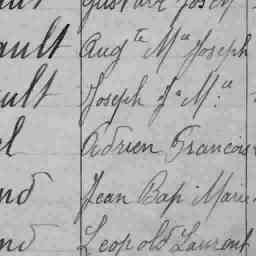 Gustave Joseph
ault Augte Ma Joseph
ault Joseph Jn Ma:
el Adrien Francois
nd Jean Bap. Marie
nd Leopold Laurent